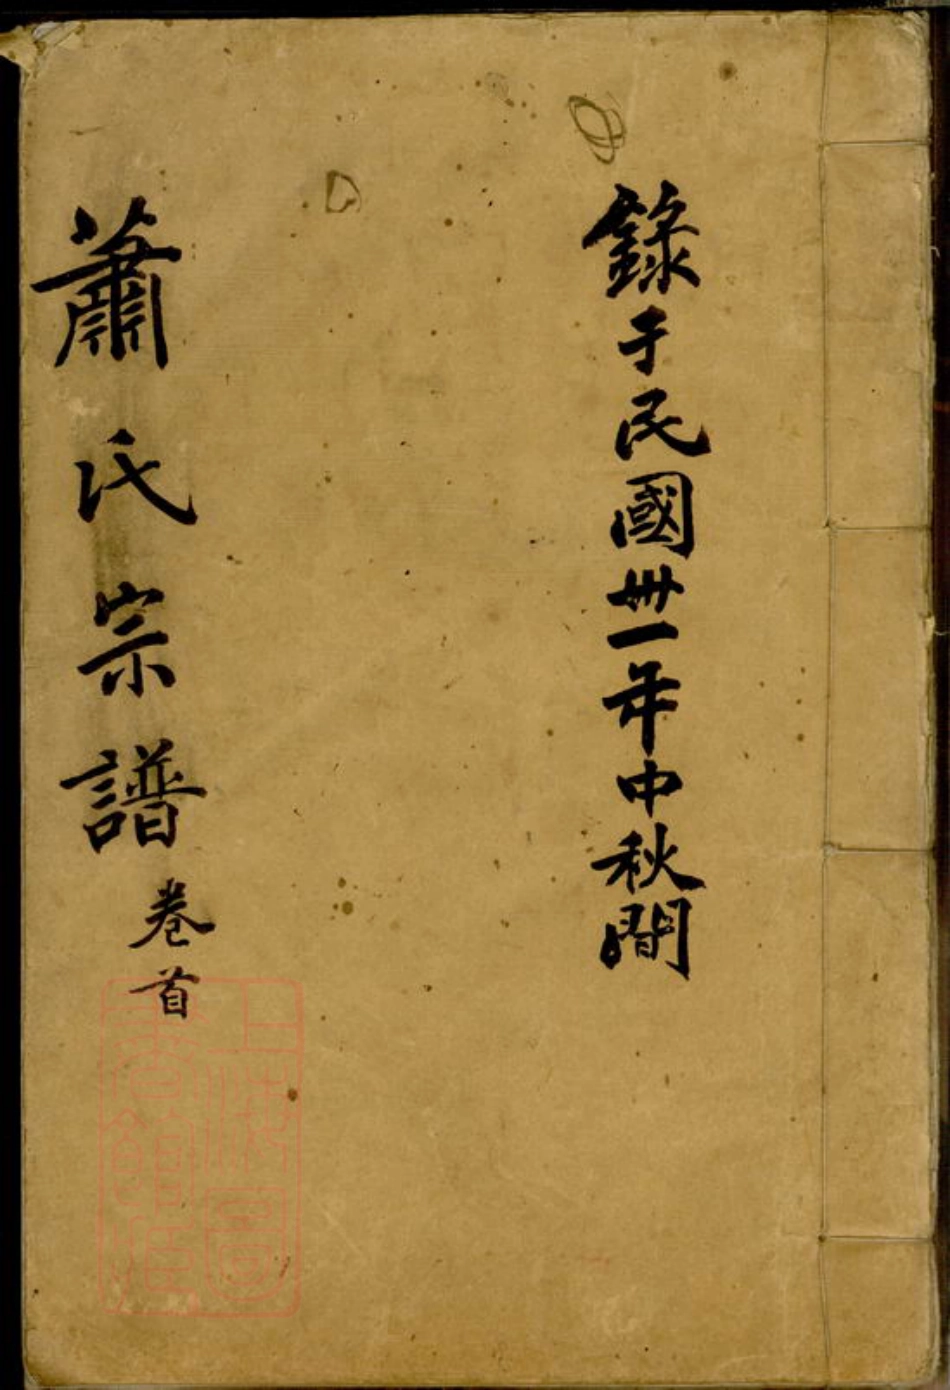 錄于民國卌一年中秋間
蕭氏宗譜 卷首
上海圖
書館藏